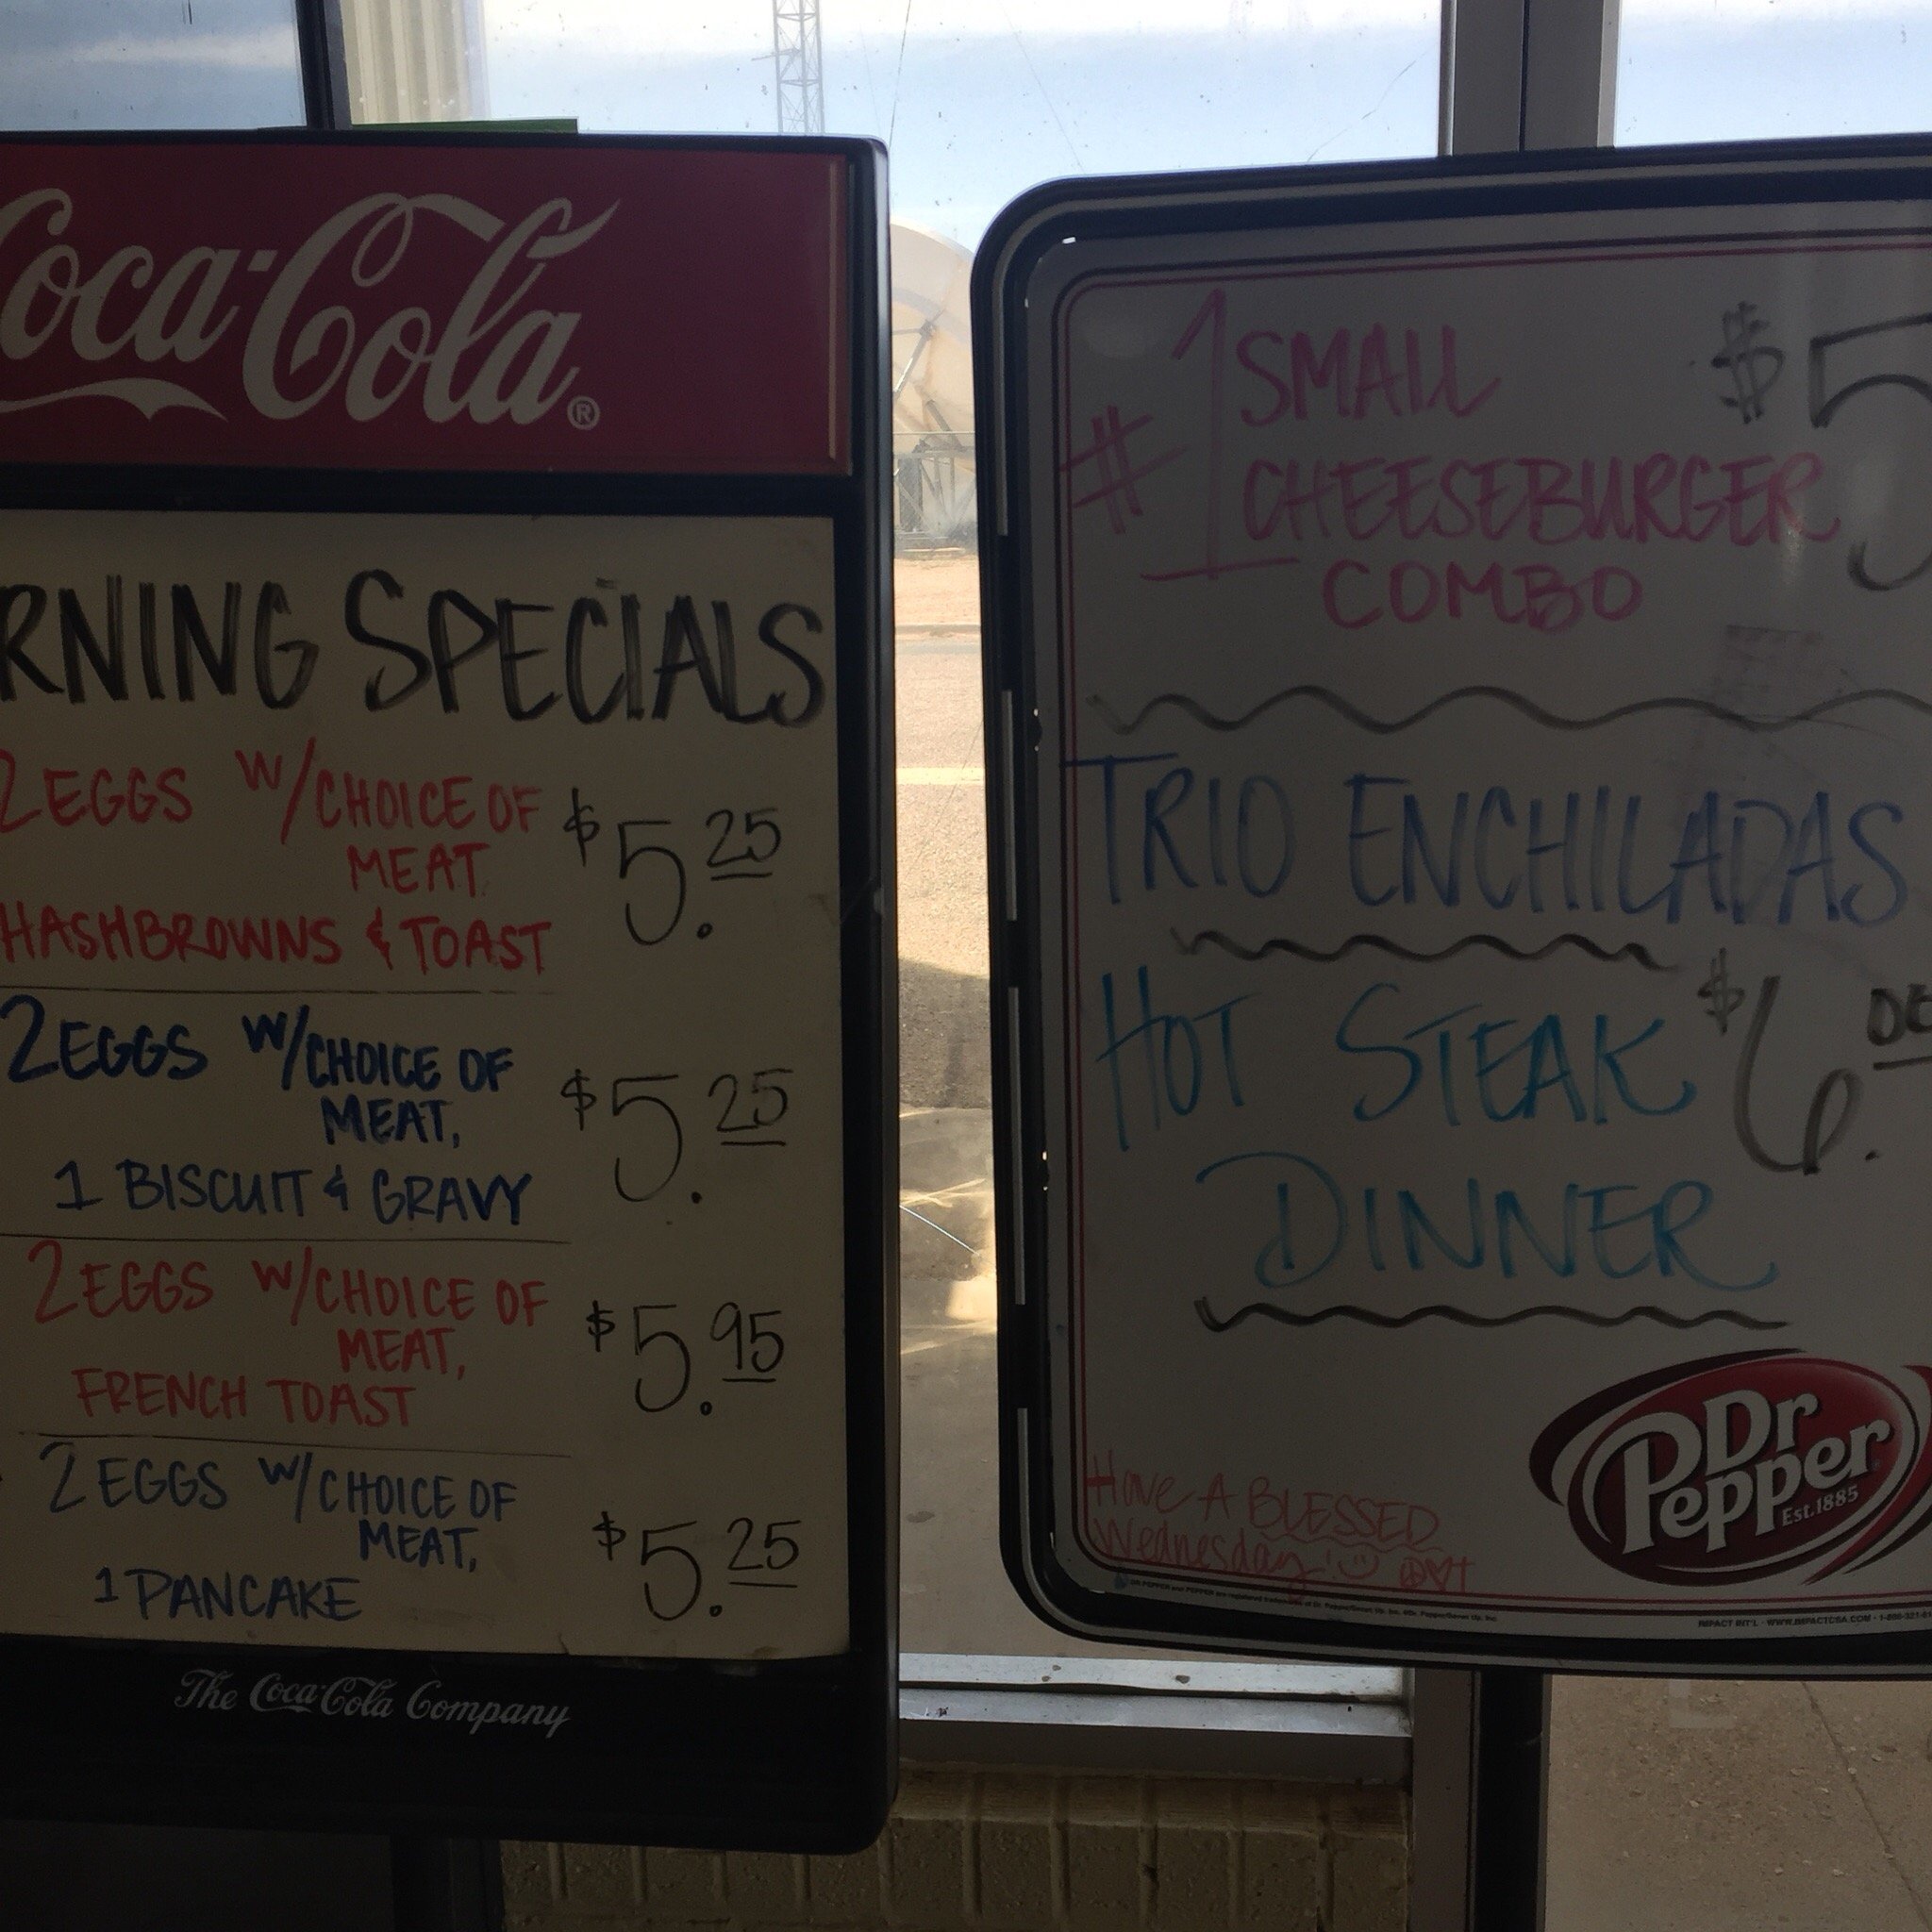 Coca-Cola®
RNING SPECIALS
2 EGGS W/CHOICE OF
MEAT
$5.25
HASHBROWNS & TOAST
2 EGGS W/CHOICE OF
MEAT,
$5.25
1 BISCUIT & GRAVY
2 EGGS W/CHOICE OF
MEAT,
$5.95
FRENCH TOAST
2 EGGS W/CHOICE OF
MEAT,
$5.25
1 PANCAKE
The Coca-Cola Company
#1 SMALL $5
CHEESEBURGER
COMBO
TRIO ENCHILADAS
HOT STEAK $6.
DINNER
Dr
Pepper
Est. 1885
Have A BLESSED
Wednesday!
IMPACT INT'L · WWW.IMPACTCSA.COM